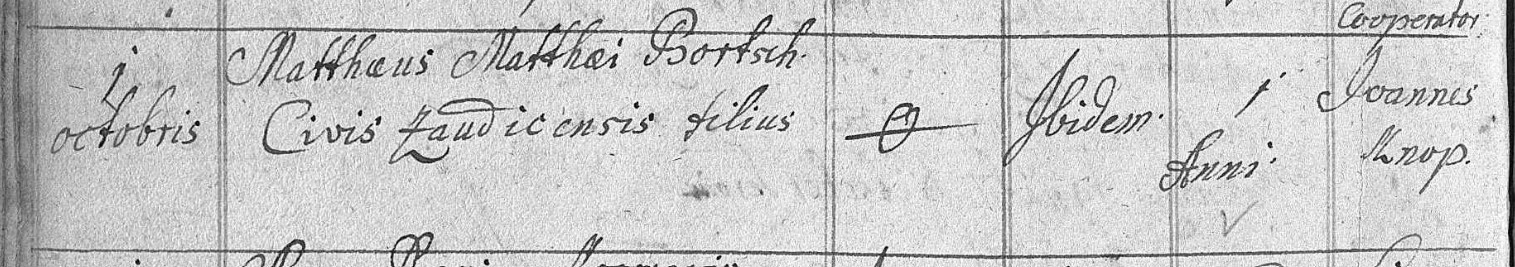 Cooperator
1 octobris
Matthæus Matthæi Bortsch.
Civis Zaudicensis filius
Ibidem.
1 Anni.
Joannes
Knop.